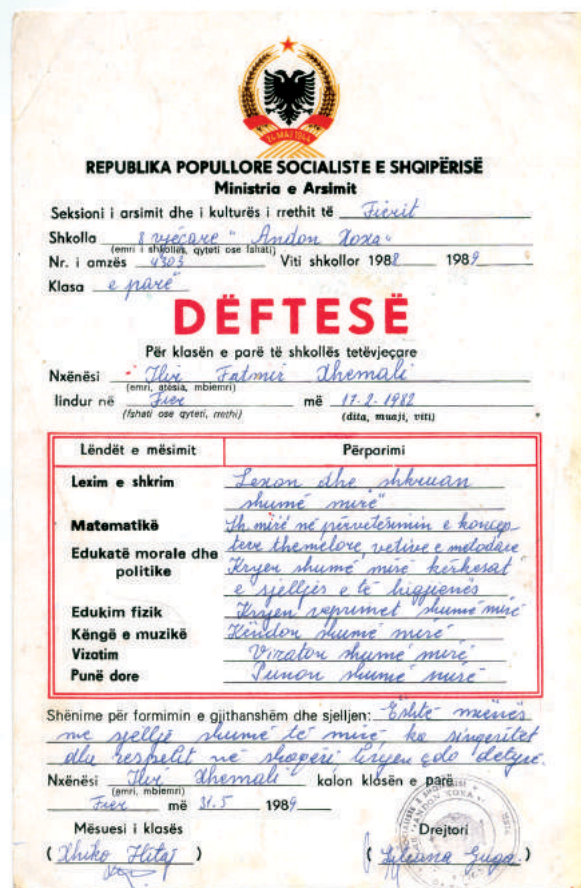 24 MAJ 1944
REPUBLIKA POPULLORE SOCIALISTE E SHQIPËRISË
Ministria e Arsimit
Seksioni i arsimit dhe i kulturës i rrethit të Fierit
Shkolla 8 vjeçare "Andon Xoxa"
(emri i shkollës, qyteti ose fshati)
Nr. i amzës 4303 Viti shkollor 1988 1989
Klasa e parë
DËFTESË
Për klasën e parë të shkollës tetëvjeçare
Nxënësi Ilvi Fatmir Xhemali
(emri, atësia, mbiemri)
lindur në Fier më 17-2-1982
(fshati ose qyteti, rrethi) (dita, muaji, viti)
Lëndët e mësimit Përparimi
Lexim e shkrim Lexon dhe shkruan
shumë mirë
Matematikë Sh mirë në përvetësimin e koncep-
teve themelore, vetive e metodave
Edukatë morale dhe politike Kryen shumë mirë kërkesat
e sjelljes e të higjienës
Edukim fizik Kryen veprimet shumë mirë
Këngë e muzikë Këndon shumë mirë
Vizatim Vizaton shumë mirë
Punë dore Punon shumë mirë
Shënime për formimin e gjithanshëm dhe sjelljen: Është nxënës
me sjellje shumë të mirë, ka sinqeritet
dhe respekt në shoqëri kryen çdo detyrë.
Nxënësi Ilvi Xhemali kalon klasën e parë
(emri, mbiemri)
Fier më 31.5 1989
Mësuesi i klasës Drejtori
(Xhiko Hitaj) (Liliana Guga)